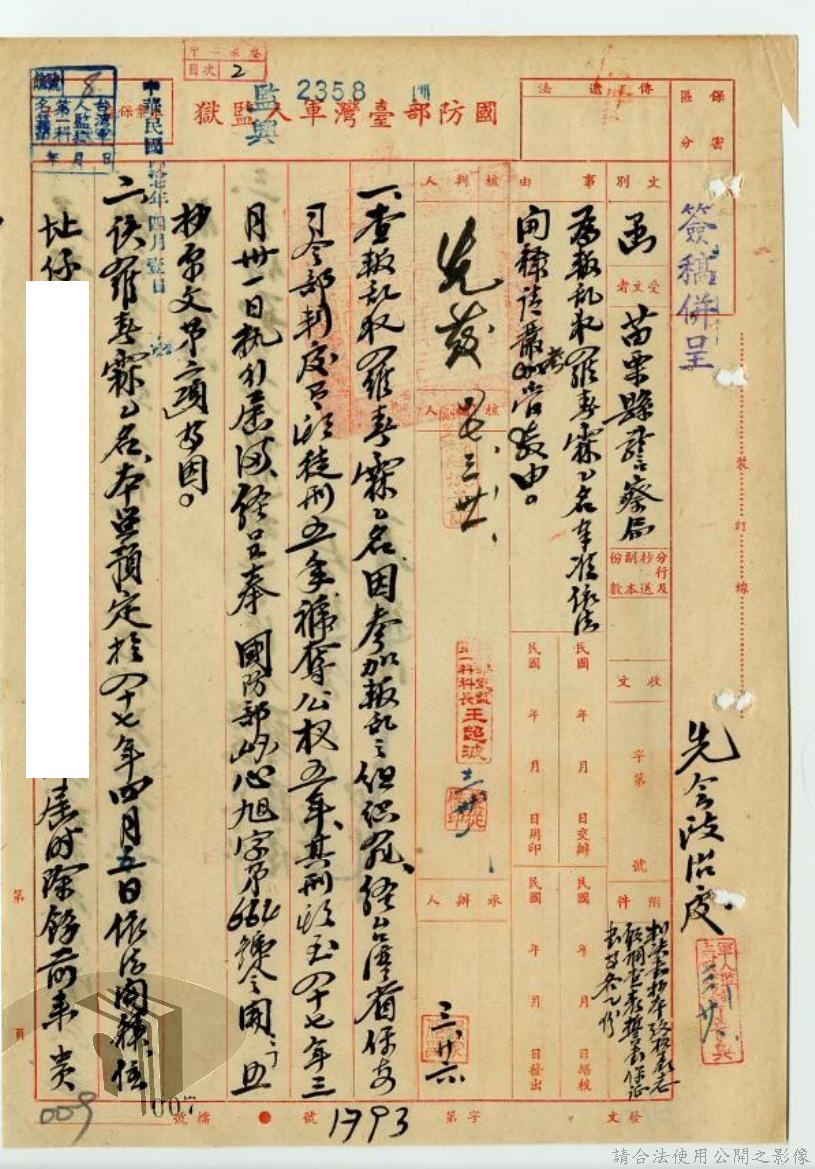 保密
區分
傳遞
法
國防部臺灣軍人監獄
監興
2358
目次 2
8
台灣軍人監獄
第一科
年 月 日
中華民國 四月壹日
簽稿併呈
先會政治處
文別
函
受文者
苗栗縣警察局
分行及抄送副本份數
收文
字第
號
附件
事由
為叛乱犯羅春霖乙名奉准依法
開釋請嚴加考管教由。
民國 年 月 日交辦
民國 年 月 日用印
民國 年 月 日繕校
民國 年 月 日發出
核判人
先發
三、卅一
核稿人
第一科科長王
承辦人
三、廿六
一、查叛乱犯羅春霖乙名因參加叛乱之組織罪、經台灣省保安
司令部判處有期徒刑五年、褫奪公权五年、其刑期至四十七年三
月卅一日执行屆滿、經呈奉 國防部 心旭字第664號令開：「
抄原文第二項」等因。
二、該羅春霖乙名、本監預定於四十七年四月五日依法開釋、住
址係
屆時除飭前來 貴
裝
訂
線
第
頁
發文
字第
1793
號
檔號
009
007
請合法使用公開之影像